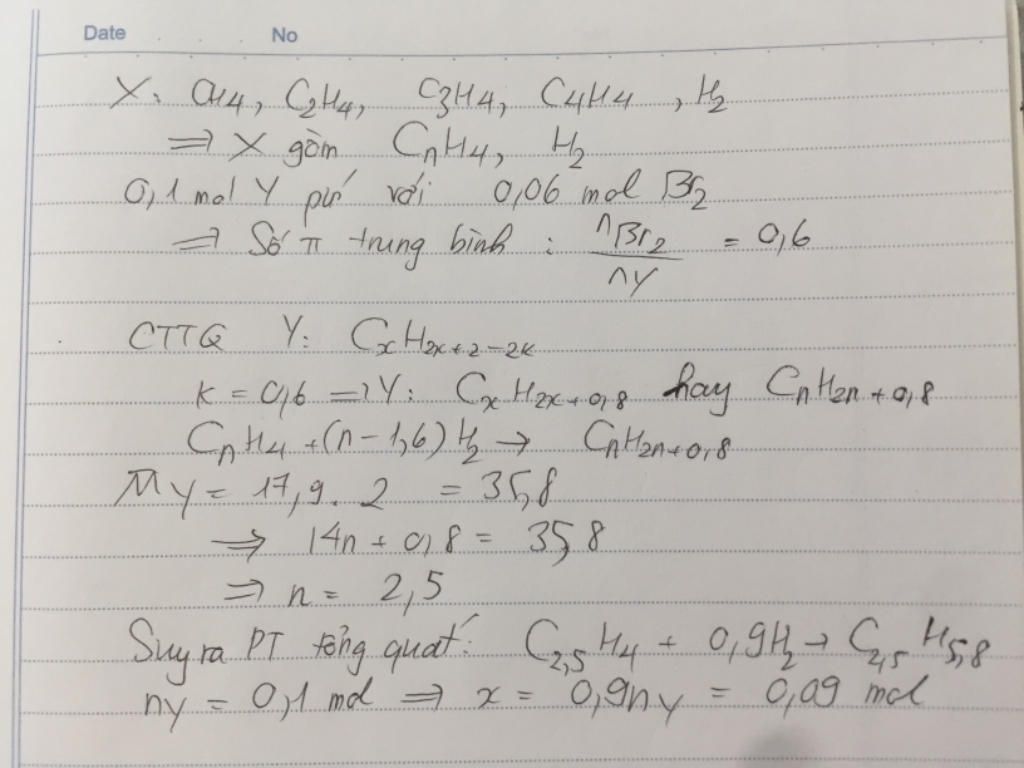 Date No
X: CH4, C2H4, C3H4, C4H4, H2
⇒ X gồm CnH4, H2
0,1 mol Y pứ với 0,06 mol Br2
⇒ Số π trung bình : nBr2 / nY = 0,6
CTTQ Y: CxH2x+2-2k
k = 0,6 ⇒ Y: CxH2x+0,8 hay CnH2n+0,8
CnH4 + (n-1,6) H2 → CnH2n+0,8
MY = 17,9.2 = 35,8
⇒ 14n + 0,8 = 35,8
⇒ n = 2,5
Suy ra PT tổng quát: C2,5H4 + 0,9H2 → C2,5H5,8
nY = 0,1 mol ⇒ x = 0,9nY = 0,09 mol